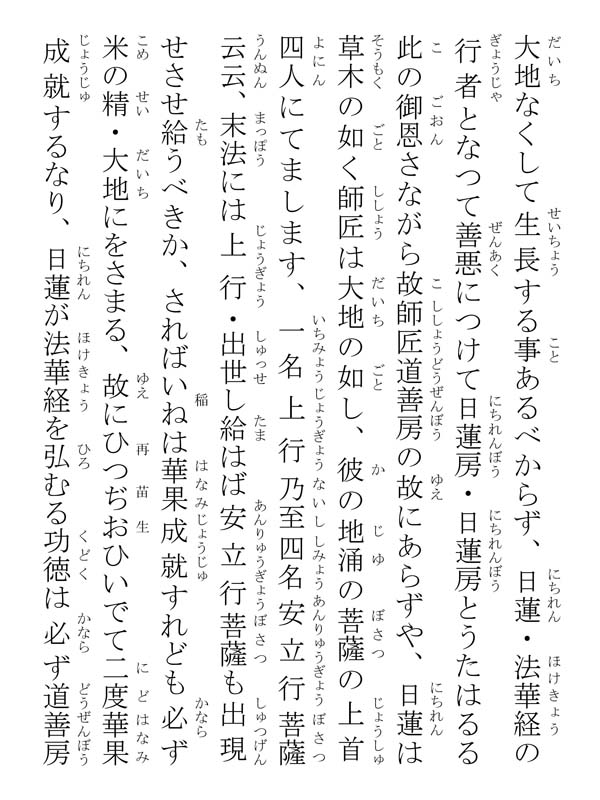 大地なくして生長する事あるべからず、日蓮・法華経の
行者となつて善悪につけて日蓮房・日蓮房とうたはるる
此の御恩さながら故師匠道善房の故にあらずや、日蓮は
草木の如く師匠は大地の如し、彼の地涌の菩薩の上首
四人にてまします、一名上行乃至四名安立行菩薩
云云、末法には上行・出世し給はば安立行菩薩も出現
せさせ給うべきか、さればいねは華果成就すれども必ず
米の精・大地にをさまる、故にひつぢおひいでて二度華果
成就するなり、日蓮が法華経を弘むる功徳は必ず道善房